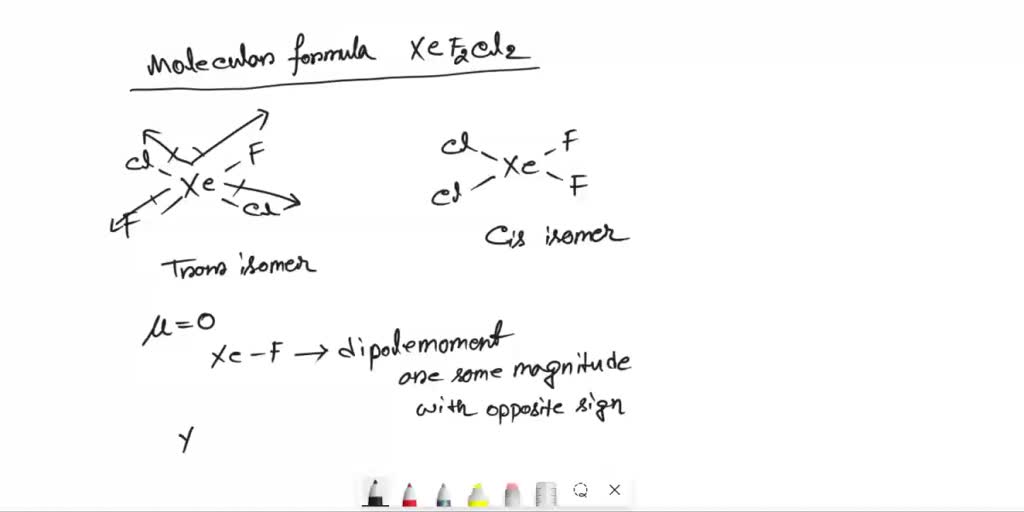 Molecular formula XeF2Cl2
Cl F
Xe
F Cl
Trans isomer
Cl F
Xe
Cl F
Cis isomer
μ=0
Xe-F → dipolemoment
are same magnitude
with opposite sign
Y